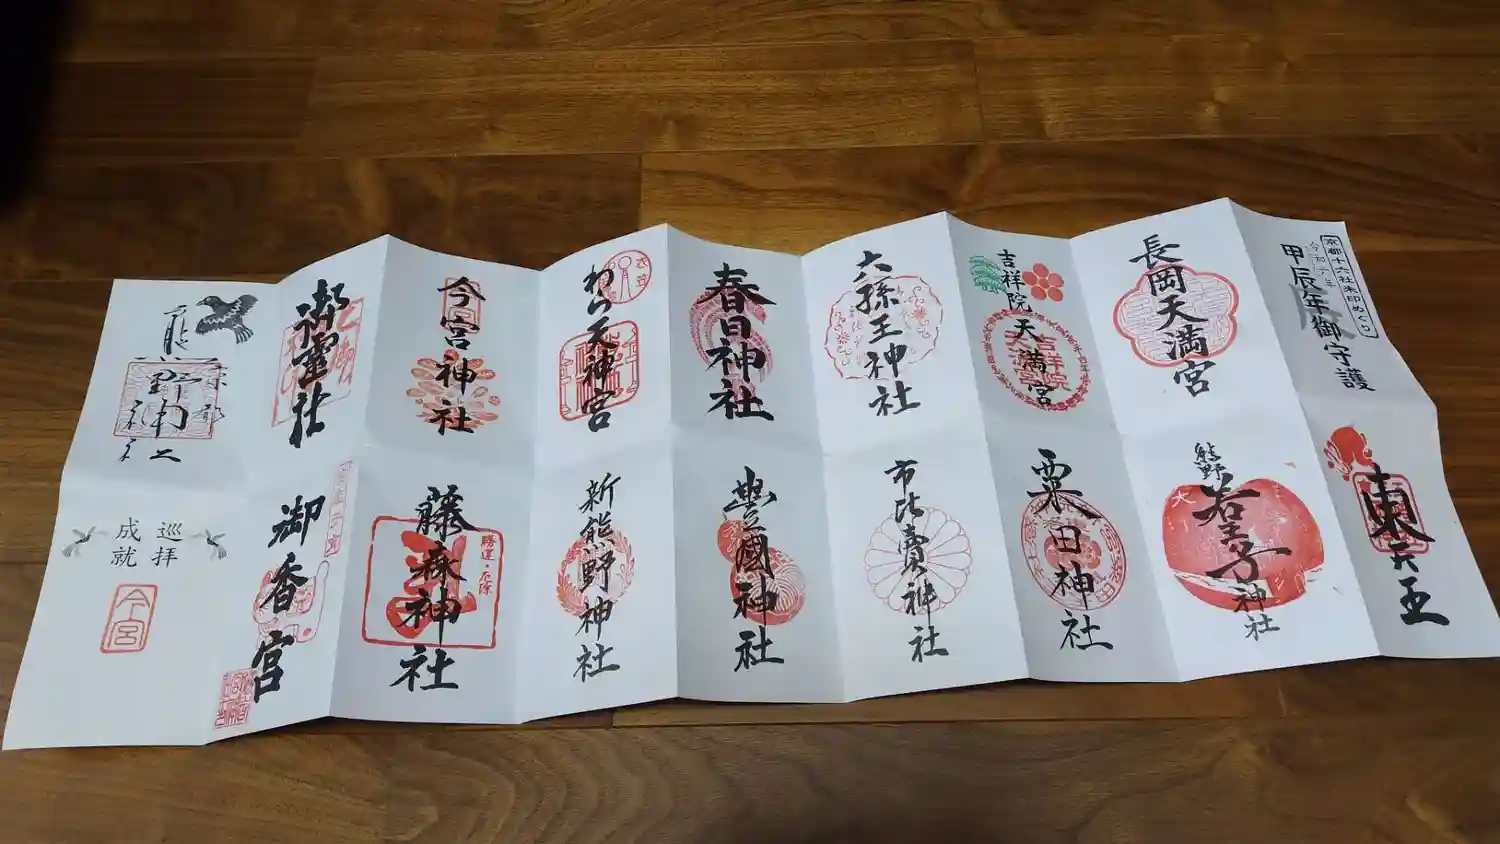 京都十六社朱印めぐり
令和六年
甲辰年御守護
長岡天満宮
吉祥院
天満宮
六孫王神社
春日神社
わら天神宮
今宮神社
御霊社
熊野
東天王
熊野
若王子
神社
粟田神社
市比賣神社
豊國神社
新熊野神社
藤森神社
勝運・
御香宮
巡拝
成就
今宮